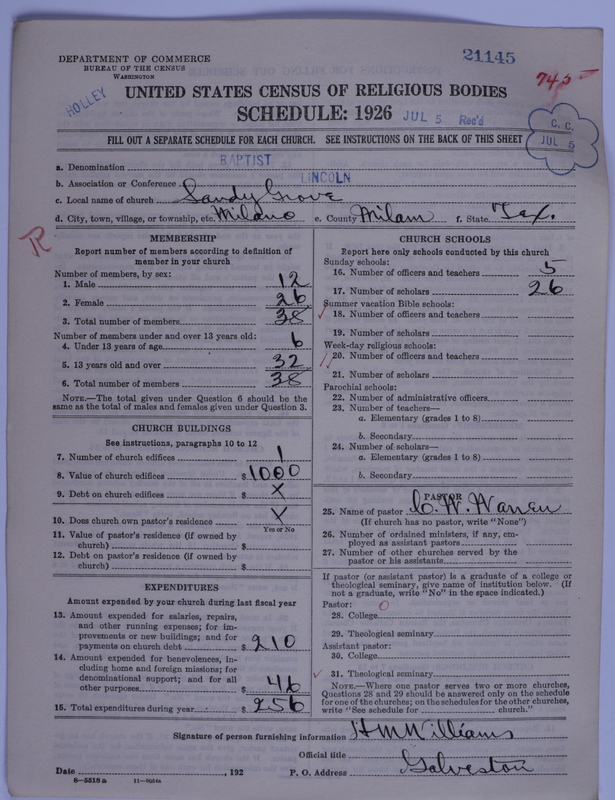 DEPARTMENT OF COMMERCE
BUREAU OF THE CENSUS
WASHINGTON
21145
HOLLEY
UNITED STATES CENSUS OF RELIGIOUS BODIES
SCHEDULE: 1926 JUL 5 Rec'd
C. C.
JUL 5
FILL OUT A SEPARATE SCHEDULE FOR EACH CHURCH. SEE INSTRUCTIONS ON THE BACK OF THIS SHEET
a. Denomination BAPTIST
b. Association or Conference LINCOLN
c. Local name of church Sandy Grove
d. City, town, village, or township, etc. Milano e. County Milam f. State Tex.
R
MEMBERSHIP
Report number of members according to definition of
member in your church
Number of members, by sex:
1. Male 12
2. Female 26
3. Total number of members 38
Number of members under and over 13 years old:
4. Under 13 years of age 6
5. 13 years old and over 32
6. Total number of members 38
NOTE.—The total given under Question 6 should be the
same as the total of males and females given under Question 3.
CHURCH BUILDINGS
See instructions, paragraphs 10 to 12
7. Number of church edifices 1
8. Value of church edifices $ 1000
9. Debt on church edifices $ X
10. Does church own pastor's residence X
Yes or No
11. Value of pastor's residence (if owned by
church) $
12. Debt on pastor's residence (if owned by
church) $
EXPENDITURES
Amount expended by your church during last fiscal year
13. Amount expended for salaries, repairs,
and other running expenses; for im-
provements or new buildings; and for
payments on church debt $ 210
14. Amount expended for benevolences, in-
cluding home and foreign missions; for
denominational support; and for all
other purposes $ 46
15. Total expenditures during year $ 256
CHURCH SCHOOLS
Report here only schools conducted by this church
Sunday schools:
16. Number of officers and teachers 5
17. Number of scholars 26
Summer vacation Bible schools:
18. Number of officers and teachers
19. Number of scholars
Week-day religious schools:
20. Number of officers and teachers
21. Number of scholars
Parochial schools:
22. Number of administrative officers
23. Number of teachers—
a. Elementary (grades 1 to 8)
b. Secondary
24. Number of scholars—
a. Elementary (grades 1 to 8)
b. Secondary
PASTOR
25. Name of pastor C. W. Warren
(If church has no pastor, write "None")
26. Number of ordained ministers, if any, em-
ployed as assistant pastors
27. Number of other churches served by the
pastor or his assistants
If pastor (or assistant pastor) is a graduate of a college or
theological seminary, give name of institution below. (If
not a graduate, write "No" in the space indicated.)
Pastor: 0
28. College
29. Theological seminary
Assistant pastor:
30. College
31. Theological seminary
NOTE.—Where one pastor serves two or more churches,
Questions 28 and 29 should be answered only on the schedule
for one of the churches; on the schedules for the other churches,
write "See schedule for church."
Signature of person furnishing information H M Williams
Official title
Date , 192 P. O. Address Galveston
8—5518a